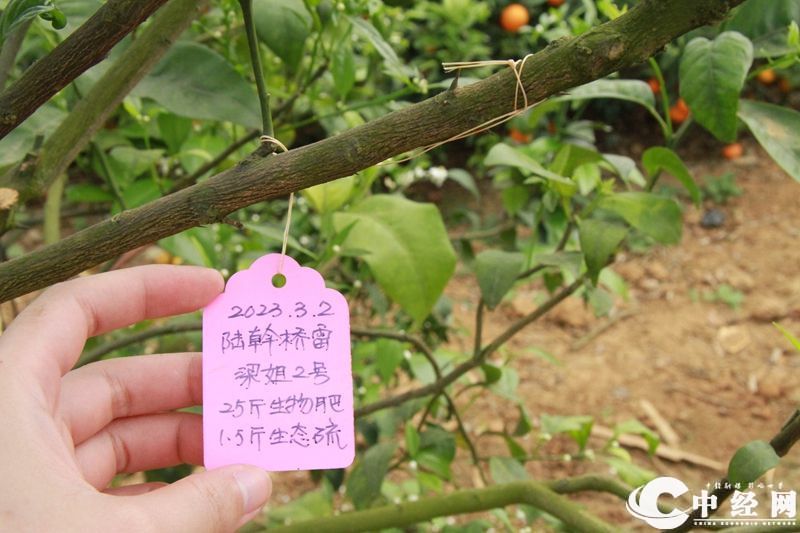 2023.3.2
陆幹桥雷
梁姐2号
25斤生物肥
1.5斤生态硒
中经网
CHINA ECONOMIC NETWORK